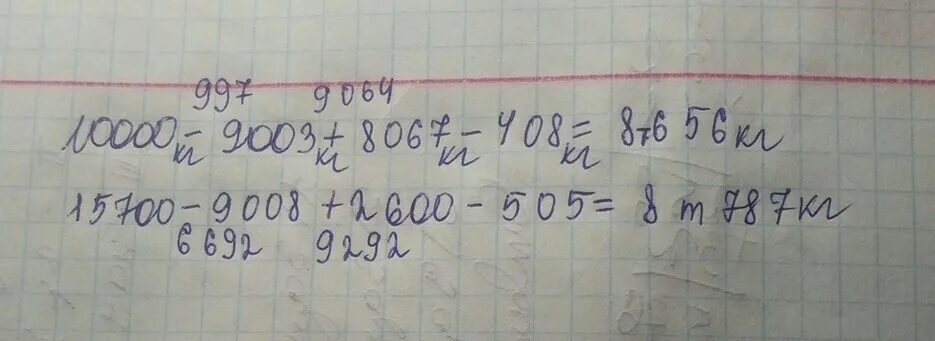 997 9064
10000кг - 9003кг + 8067кг - 408кг = 8т656кг
15700 - 9008 + 2600 - 505 = 8т 787кг
6692 9292